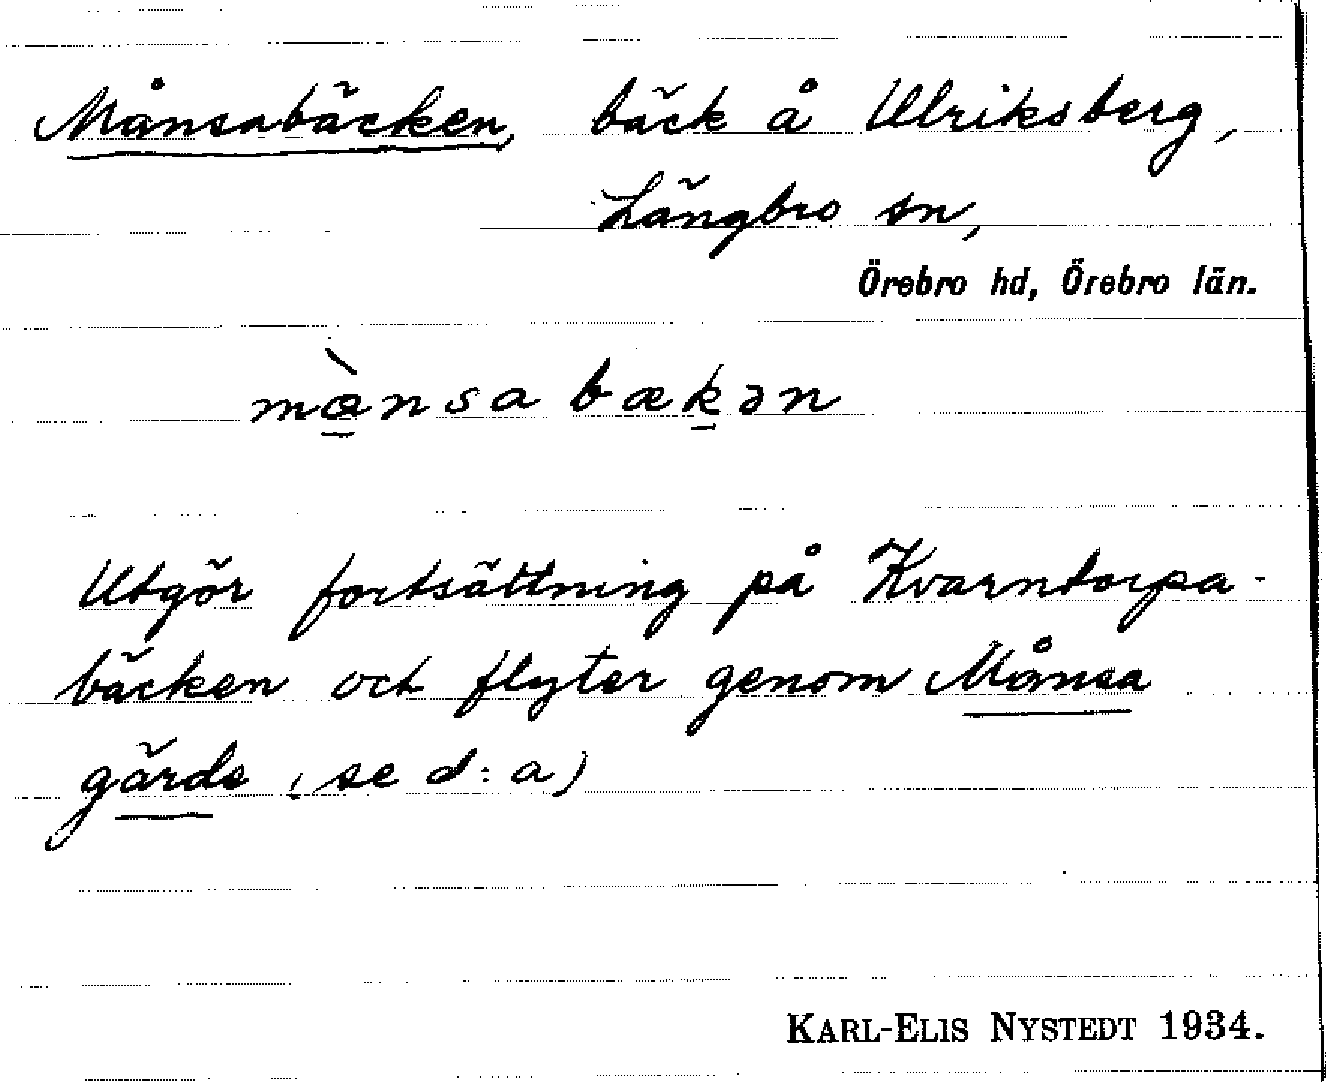 Månsabäcken, bäck å Ulriksberg,
Längbro sn,
Örebro hd, Örebro län.
mɑ̀nsabækən
Utgör fortsättning på Kvarntorpa-
bäcken och flyter genom Månsa
gärde (se d:a)
KARL-ELIS NYSTEDT 1934.